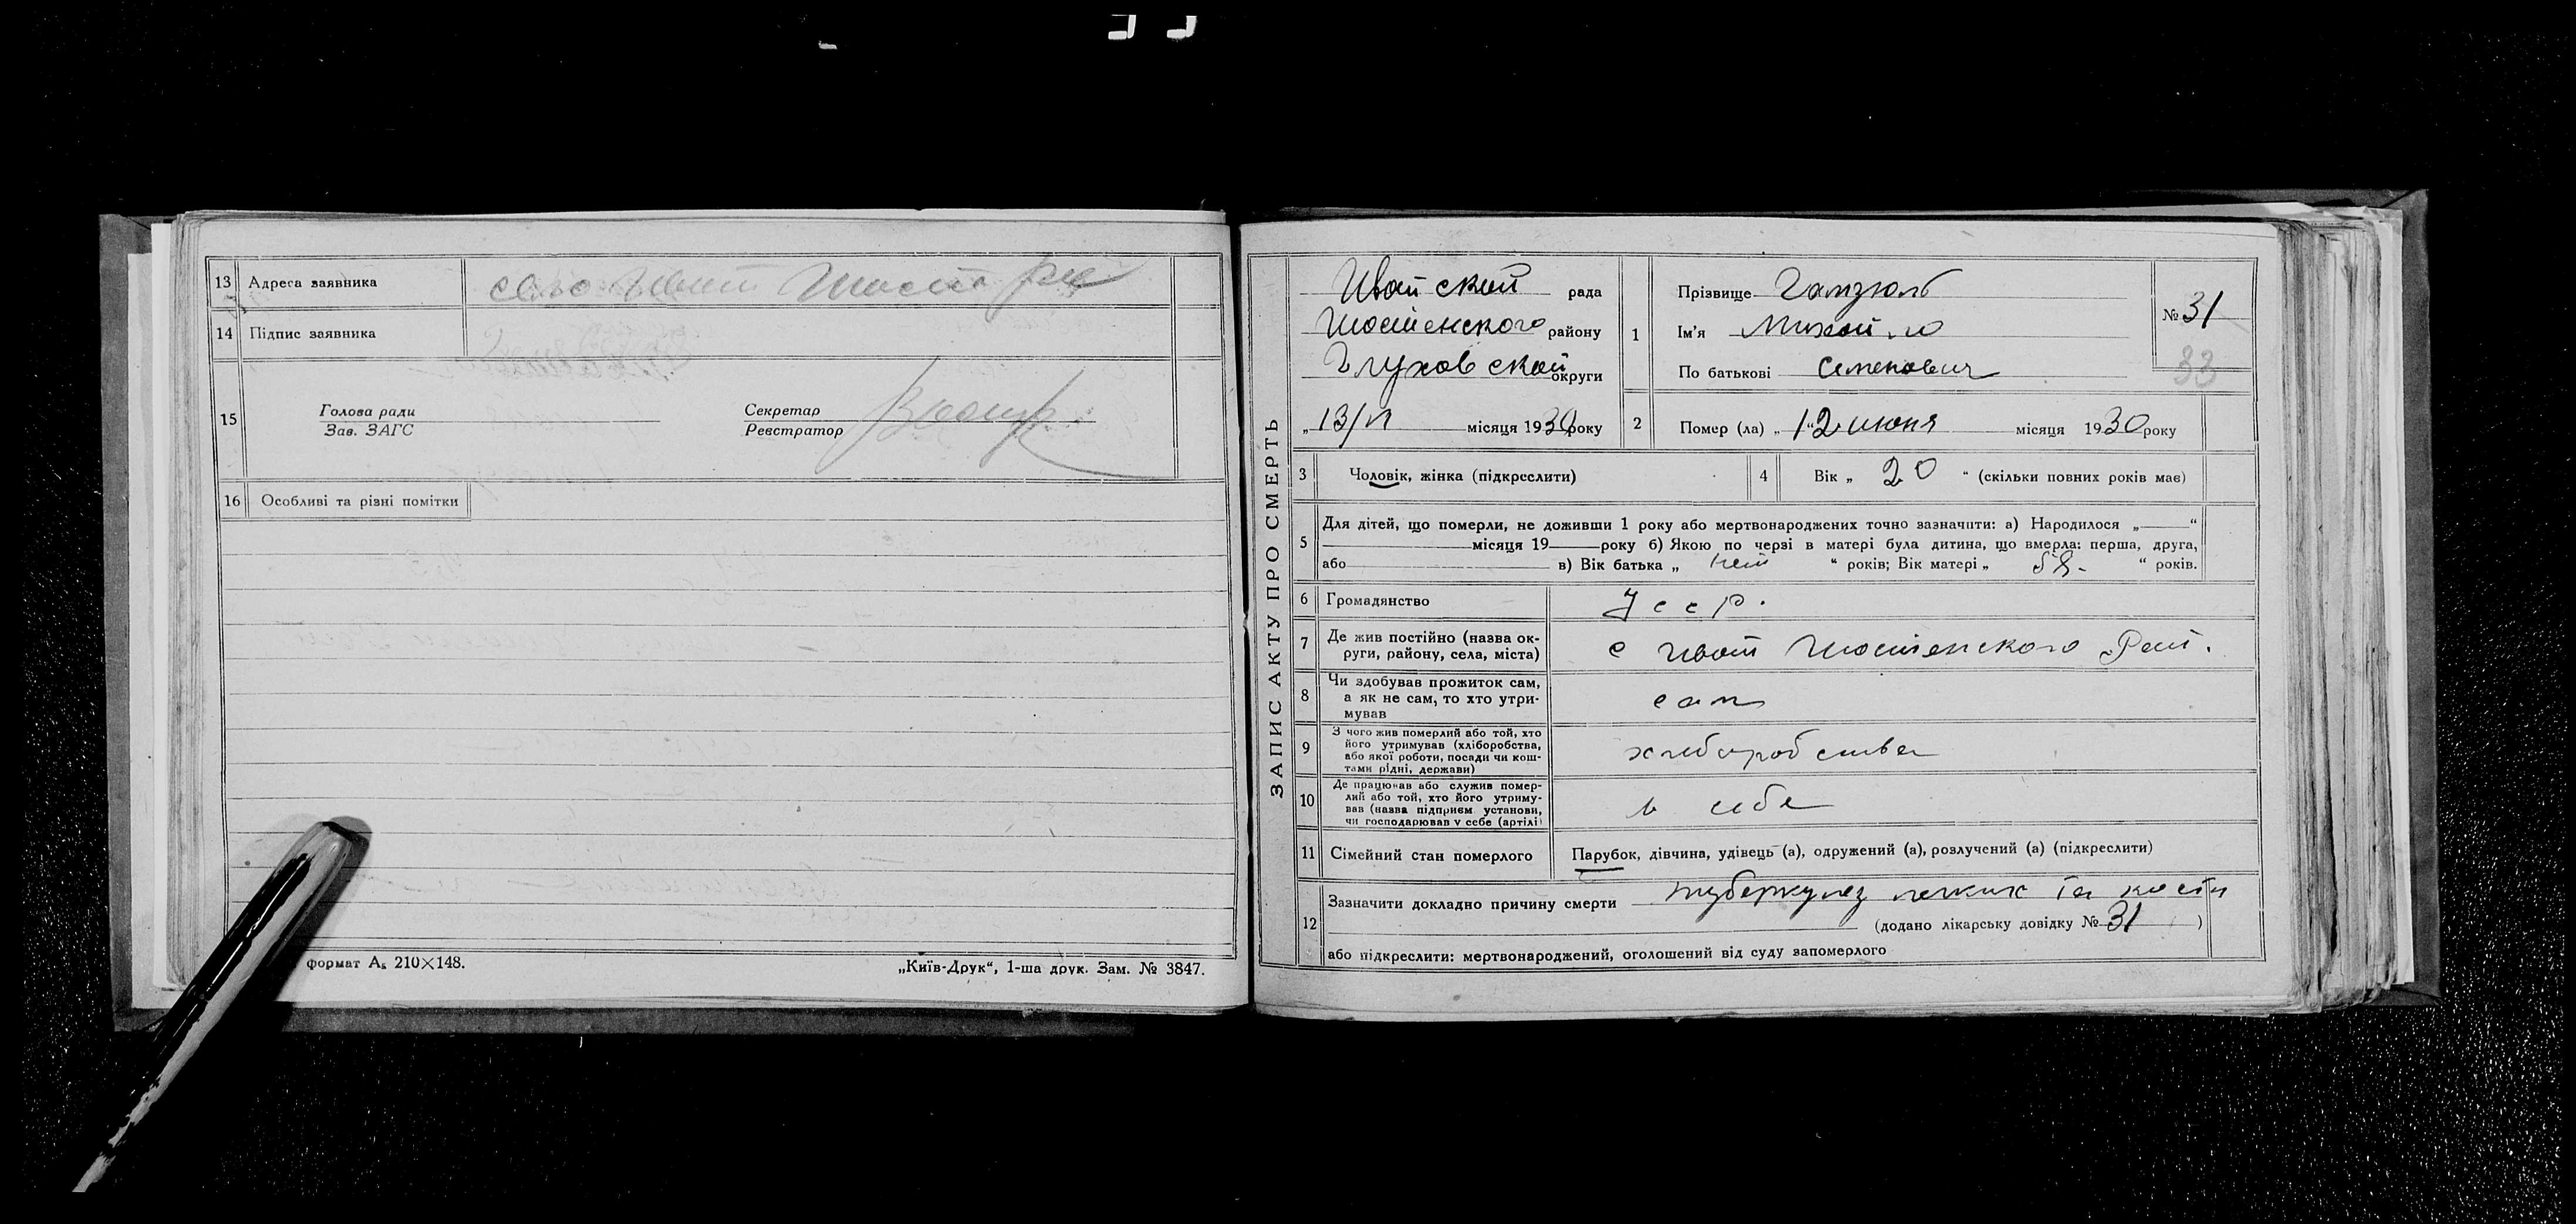 13 Адреса заявника село Ивот Шост ра
14 Підпис заявника
15 Голова ради
Зав. ЗАГС
Секретар
Реєстратор
16 Особливі та різні помітки
формат А₅ 210×148.
„Київ-Друк“, 1-ша друк. Зам. № 3847.
ЗАПИС АКТУ ПРО СМЕРТЬ
Ивотской рада
Шостенского району
Глуховской округи
„13/VI місяця 1930 року
1 Прізвище
Ім'я Михайло
По батькові Семенович
№ 31
33
2 Помер (ла) „12“ июня місяця 1930 року
3 Чоловік, жінка (підкреслити)
4 Вік „ 20 “ (скільки повних років має)
5 Для дітей, що померли, не доживши 1 року або мертвонароджених точно зазначити: а) Народилося „ “
місяця 19 року б) Якою по черзі в матері була дитина, що вмерла: перша, друга,
або в) Вік батька „ нет “ років; Вік матері „ “ років.
6 Громадянство Усср.
7 Де жив постійно (назва ок-
руги, району, села, міста) с Ивот Шостенского Рай.
8 Чи здобував прожиток сам,
а як не сам, то хто утри-
мував
сам
9 З чого жив померлий або той, хто
його утримував (хліборобства,
або якої роботи, посади чи кош-
тами рідні, держави)
хлиборобства
10 Де працював або служив помер-
лий або той, хто його утриму-
вав (назва підприєм. установи,
чи господарював у себе (артілі)
в себе
11 Сімейний стан померлого Парубок, дівчина, удівець (а), одружений (а), розлучений (а) (підкреслити)
12 Зазначити докладно причину смерти туберкулез легких та кости
(додано лікарську довідку № 31 )
або підкреслити: мертвонароджений, оголошений від суду запомерлого